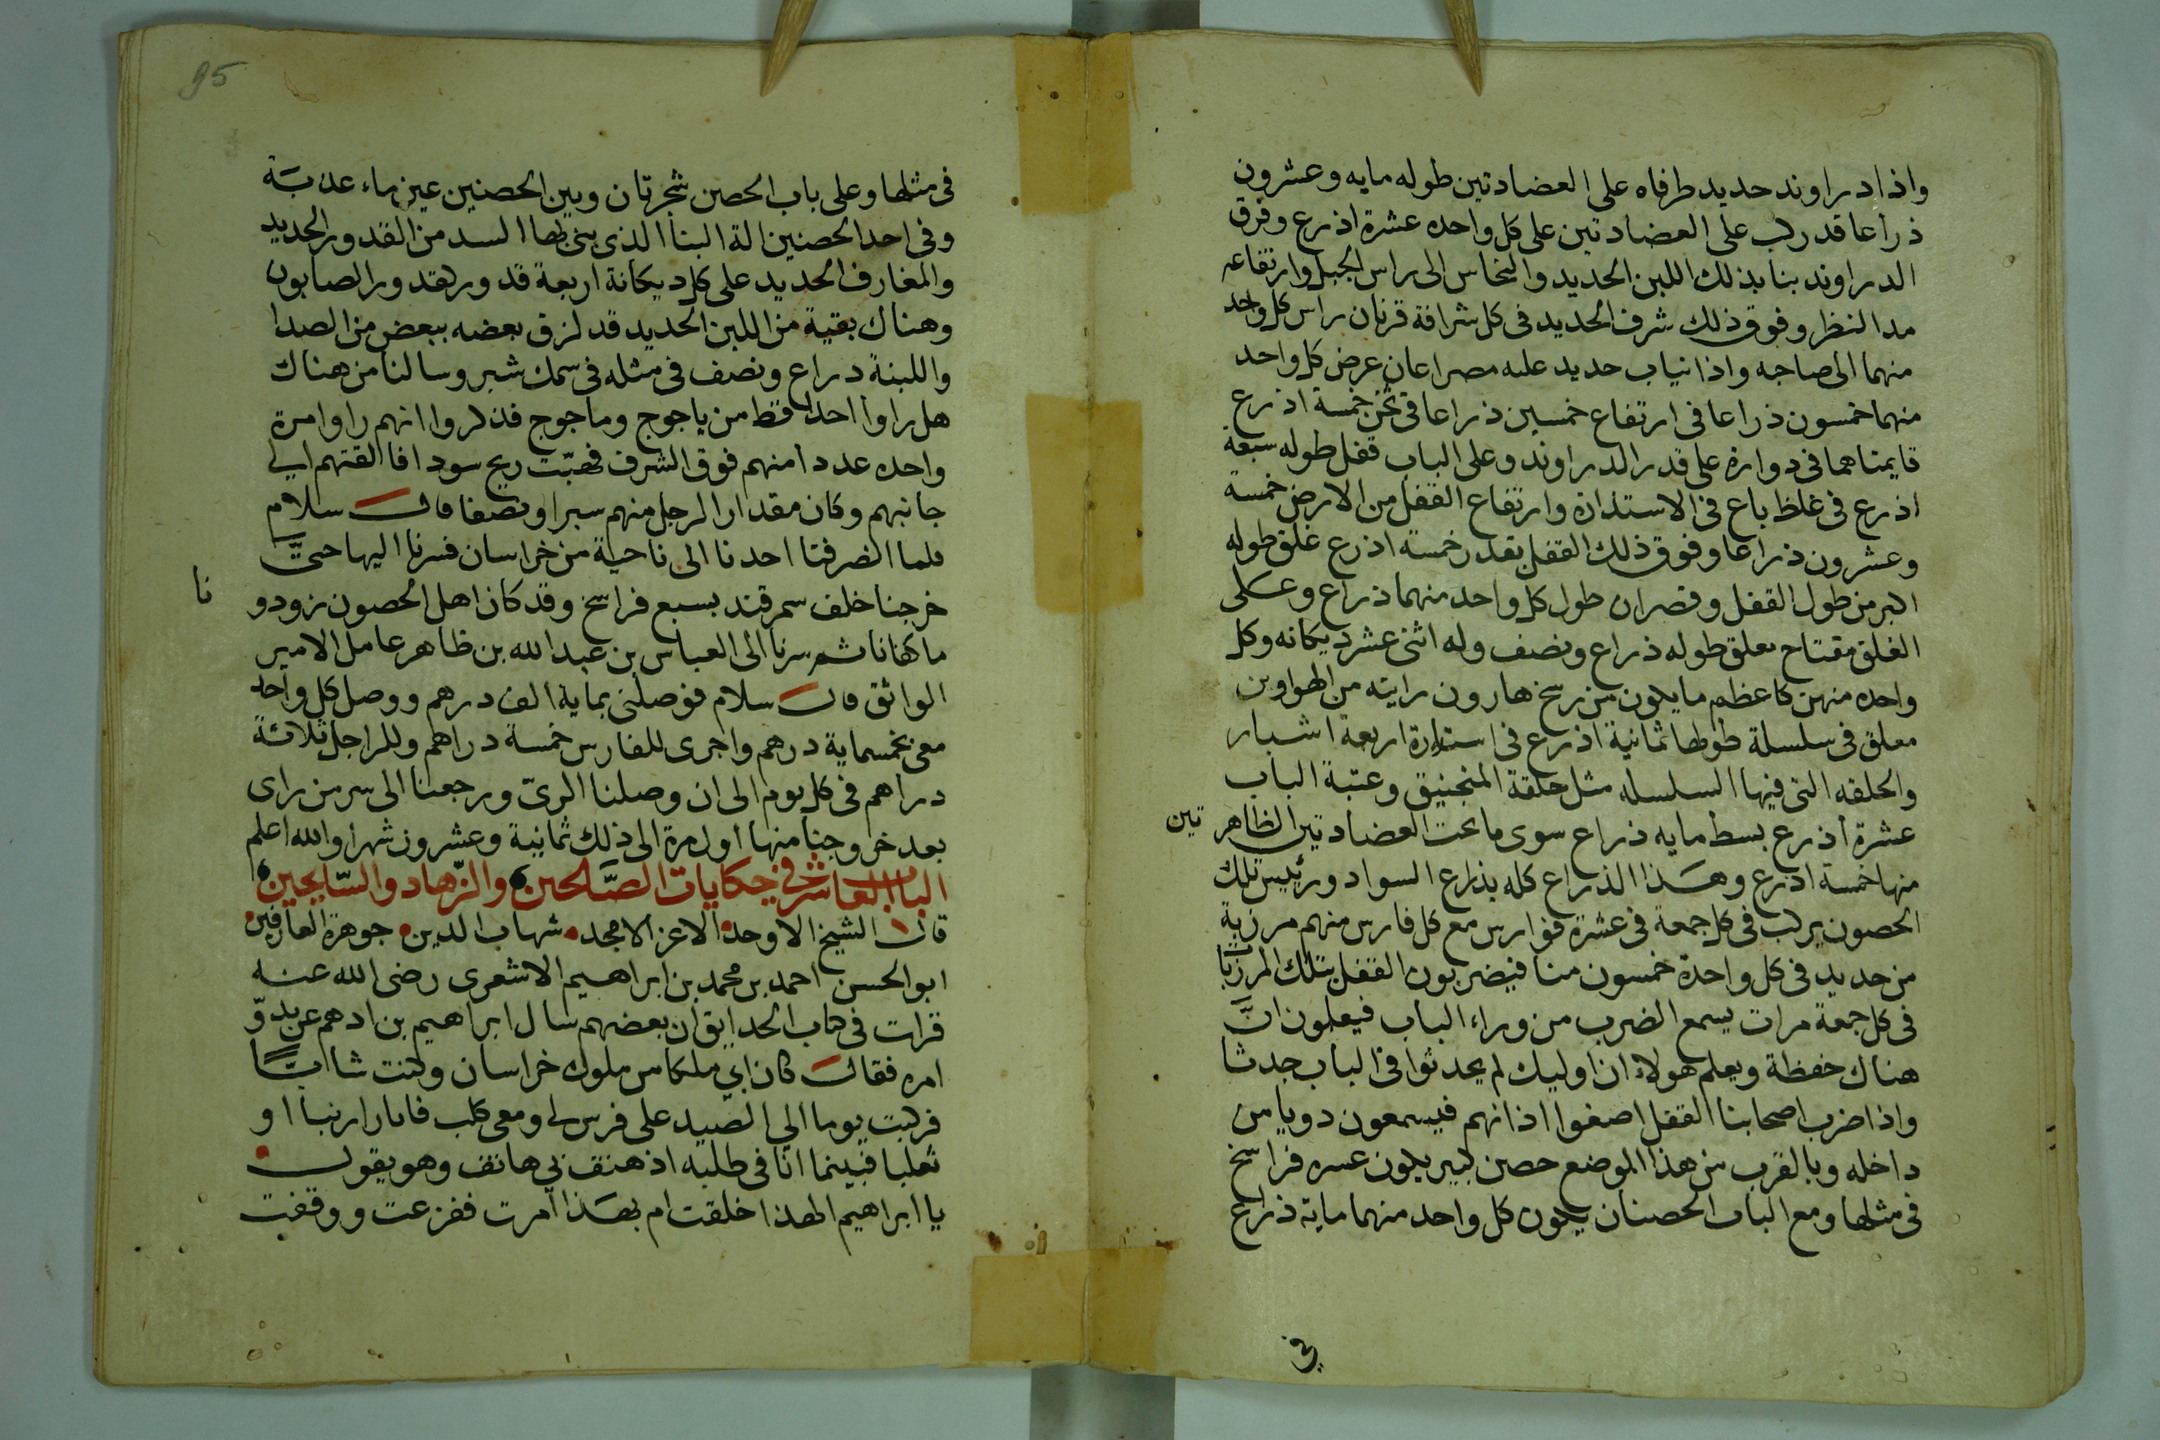 واذا دراوند حديد طرفاه على العضادتين طوله مايه وعشرون
ذراعا قد ركب على العضادتين على كل واحده عشرة اذرع وفوق
الدراوند بنا بذلك اللبن الحديد والنحاس الى راس الجبل وارتفاعه
مدا النظر وفوق ذلك شرف الحديد في كل شرافة قرنان راس كل واحد
منهما الى صاحبه واذا نياب حديد عليه مصراعان عرض كل واحد
منهما خمسون ذراعا في ارتفاع خمسين ذراعا في ثخن خمسة اذرع
قايمتاهما في دوارة على قدر الدراوند وعلى الباب قفل طوله سبعة
اذرع في غلظ باع في الاستدارة وارتفاع القفل من الارض خمسة
وعشرون ذراعا وفوق ذلك القفل بقدر خمسة اذرع غلق طوله
اكبر من طول القفل وقصران طول كل واحد منهما ذراع وعلى
الغلق مفتاح معلق طوله ذراع ونصف وله اثنى عشر ديكانه وكل
واحده منهن كاعظم ما يكون من رسخ هارون رايته من الهواوين
معلق في سلسلة طولها ثمانية اذرع في استدارة اربعة اشبار
والحلقه التى فيها السلسله مثل حلقة المنجنيق وعتبة الباب
عشرة اذرع بسط مايه ذراع سوى ما تحت العضادتين الظاهر تين
منها خمسة اذرع وهذا الذراع كله بذراع السواد ورئيس تلك
الحصون يركب في كل جمعة في عشرة فوارس مع كل فارس منهم مرزبة
من حديد في كل واحدة خمسون منا فيضربون القفل بتلك المرزبات
في كل جمعة مرات يسمع الضرب من وراء الباب فيعلون ان
هناك حفظة ويعلم هولاء ان اوليك لم يحدثوا في الباب حدثا
واذا ضرب اصحابنا القفل اصغوا اذانهم فيسمعون دويا من
داخله وبالقرب من هذا الموضع حصن كبير يكون عسره فراسخ
في مثلها ومع الباب الحصنان يكون كل واحد منهما ماية ذراع
في
95
في مثلها وعلى باب الحصن شجرتان وبين الحصنين عين ماء عذبة
وفي احد الحصنين الة البنا الذى بنى بها السد من القدور الحديد
والمغارف الحديد على كل ديكانة اربعة قدور كقدور الصابون
وهناك بقية من اللبن الحديد قد لزق بعضه ببعض من الصدا
واللبنة دراع ونصف في مثله في سمك شبر وسالنا من هناك
هل راوا احدا قط من ياجوج وماجوج فذكروا انهم راوا مرة
واحده عددا منهم فوق الشرف فهبت ريح سودا فالقتهم الي
جانبهم وكان مقدار الرجل منهم سبرا ونصفا قال سلام
فلما انصرفنا احدنا الى ناحية من خراسان فسرنا اليها حتى
خرجنا خلف سمرقند بسبع فراسخ وقد كان اهل الحصون زودو نا
ما كفانا ثم سرنا الى العباس بن عبد الله بن طاهر عامل الامير
الواثق قال سلام فوصلنى بماية الف درهم ووصل كل واحد
معى بخمسماية درهم واجرى للفارس خمسة دراهم وللراجل ثلاثة
دراهم في كل يوم الى ان وصلنا الرى ورجعنا الى سر من راى
بعد خروجنا منها اول مرة الى ذلك ثمانية وعشرون شهرا والله اعلم
الباب العاشر في حكايات الصالحين والزهاد والسايحين
قال الشيخ الاوحد الاعز الامجد شهاب الدين جوهرة العارفين
ابو الحسن احمد بن محمد بن ابراهيم الاشعرى رضى الله عنه
قرات في كتاب الحدايق ان بعضهم سال ابراهيم بن ادهم عن بدو
امره فقال كان ابي ملكا من ملوك خراسان وكنت شابا
فركبت يوما الي الصيد على فرس لي ومعى كلب فاثار ارنبا او
ثعلبا فبينما انا في طلبه اذ هتف بي هاتف وهو يقول
يا ابراهيم الهذا خلقت ام بهذا امرت ففزعت ووقفت